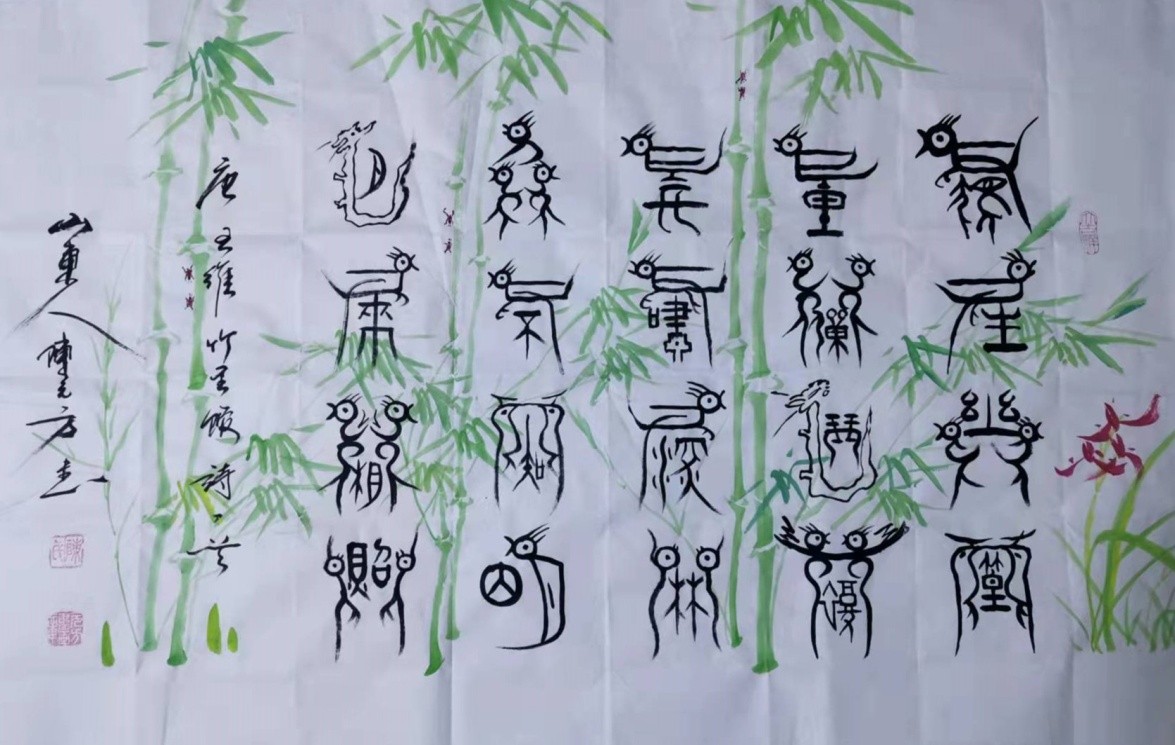 獨坐幽篁
里彈琴復
長嘯深林
人不知明
月來相照
唐王維竹里館詩一首
山東人陳元方書